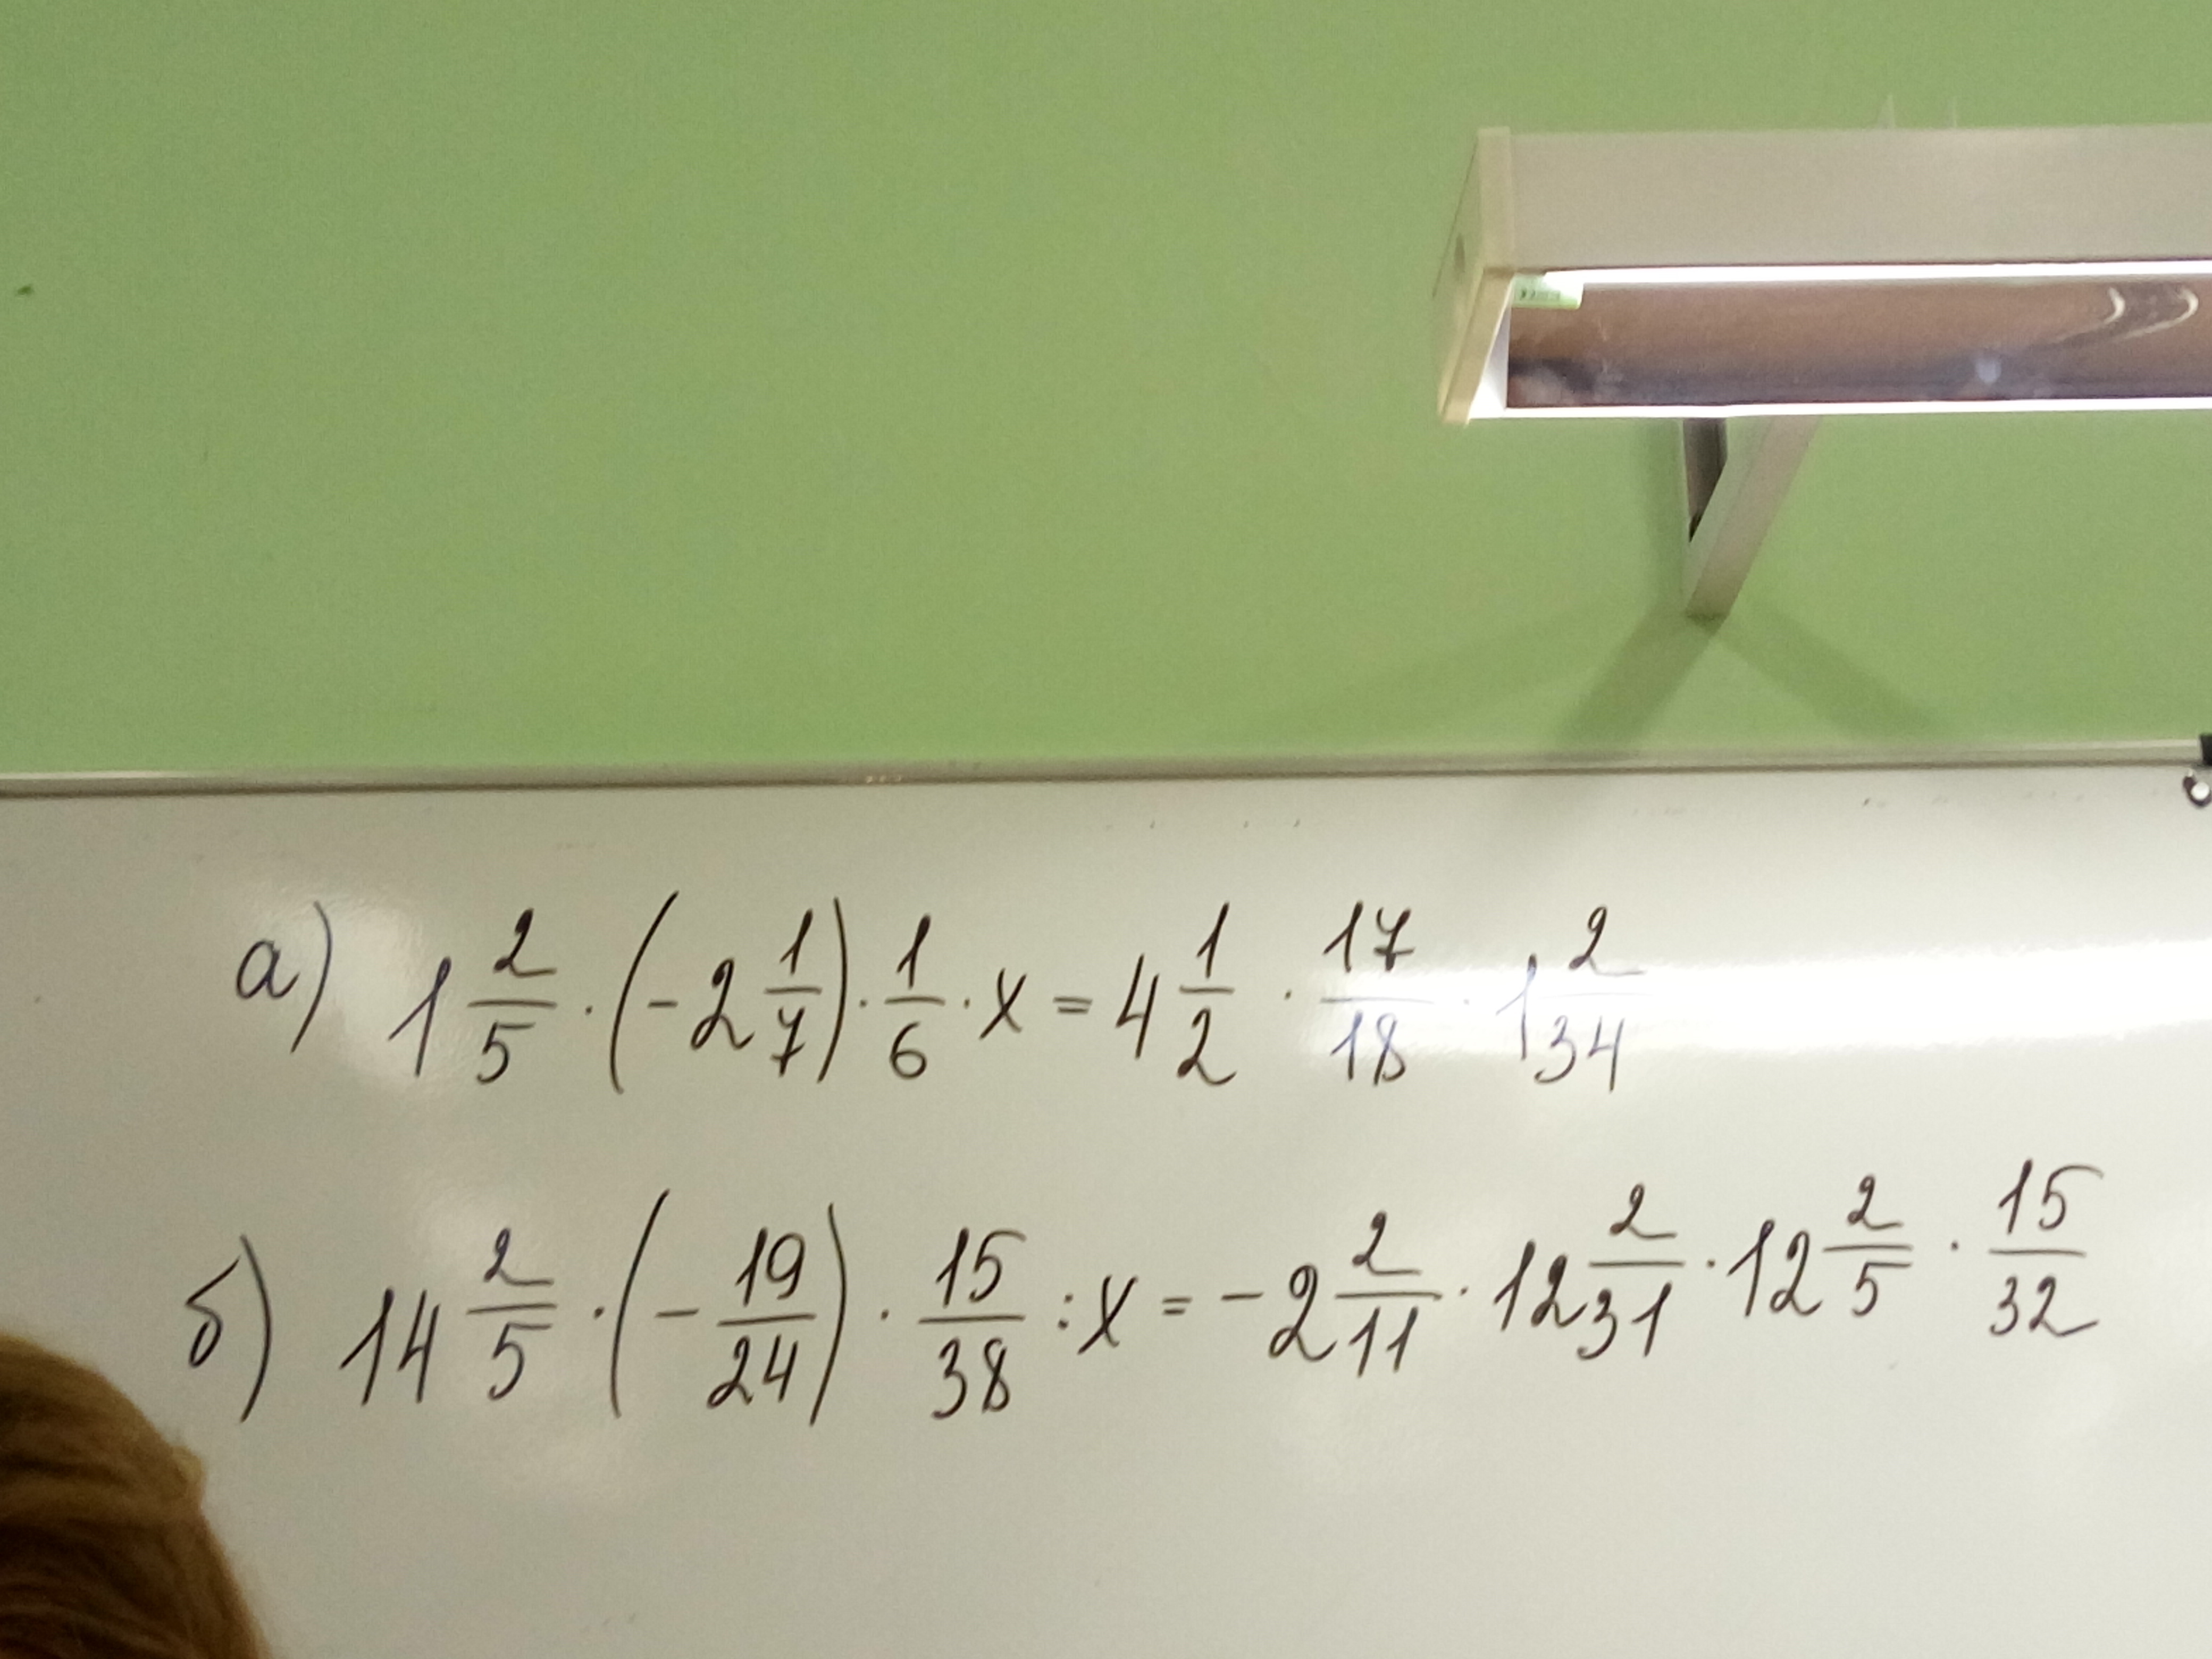 а) 1 2/5 · (-2 1/7) · 1/6 · x = 4 1/2 · 17/18 · 1 2/34
б) 14 2/5 · (- 19/24) · 15/38 : x = -2 2/11 · 12 2/31 · 12 2/5 · 15/32